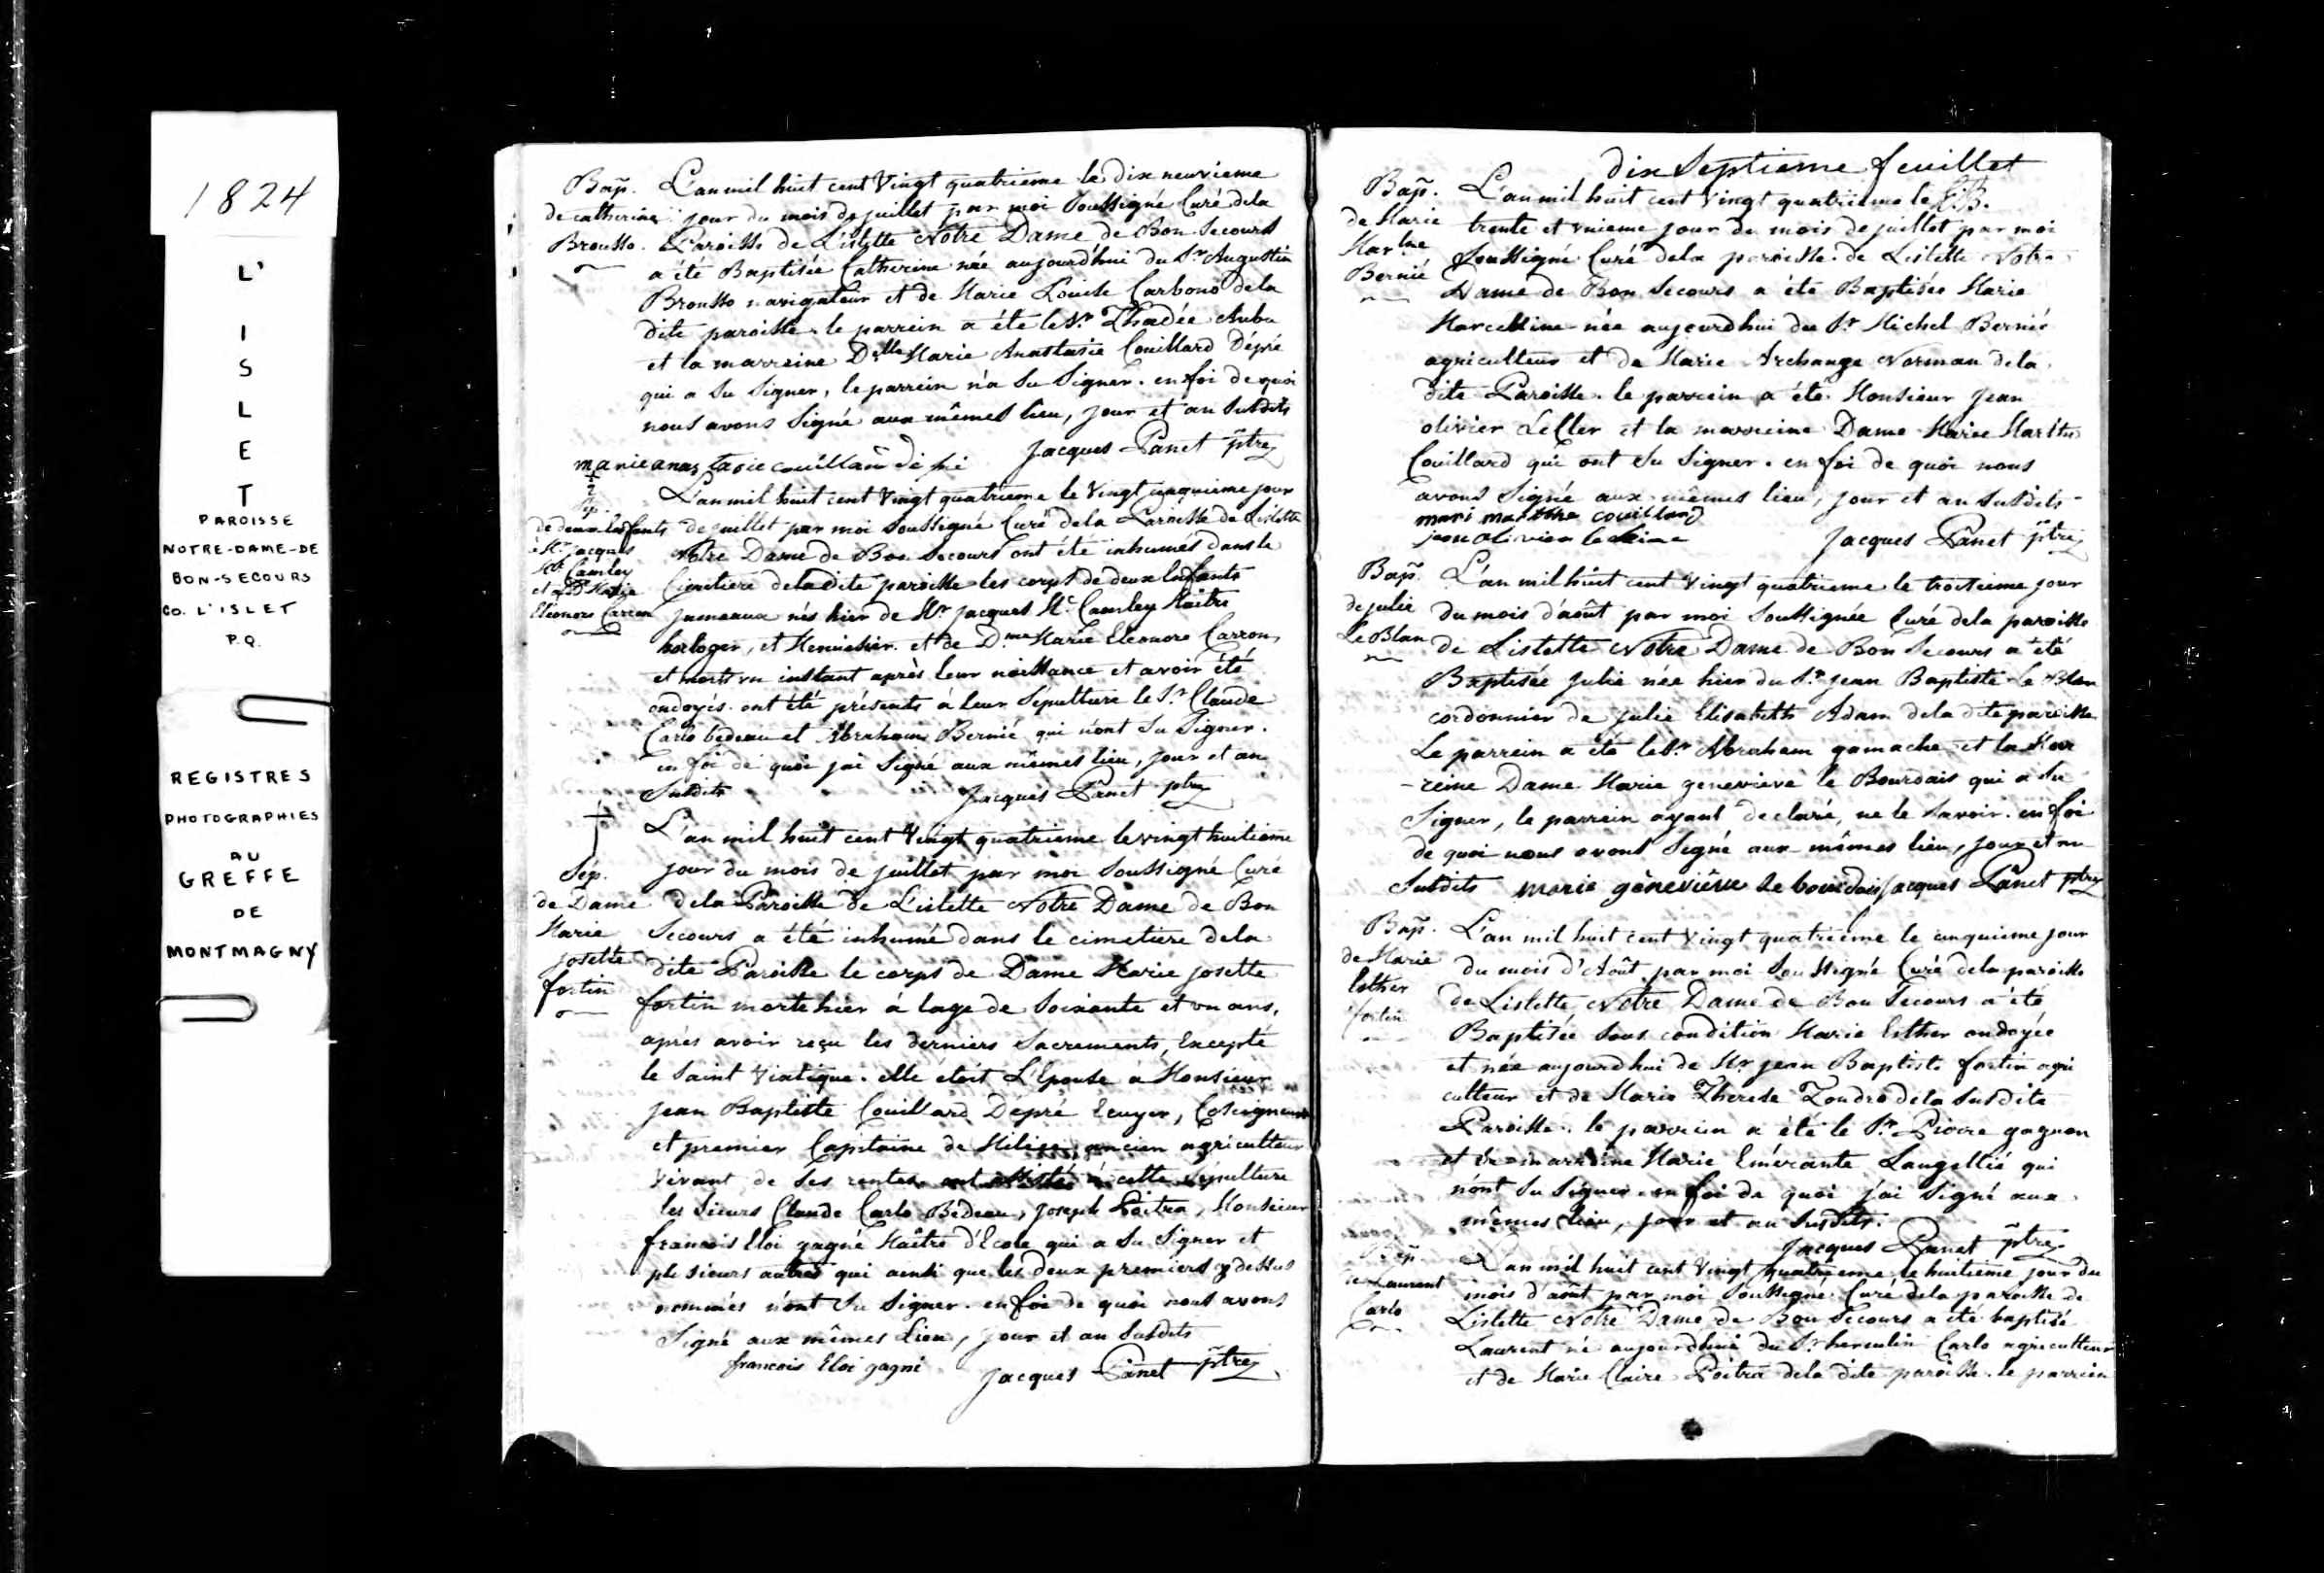 1824
L'
I
S
L
E
T
PAROISSE
NOTRE-DAME-DE
BON-SECOURS
CO. L'ISLET
P.Q.
REGISTRES
PHOTOGRAPHIES
AU
GREFFE
DE
MONTMAGNY
Bap̃. L'an mil huit cent Vingt quatrieme le dix neuvieme
de catherine jour du mois de juillet par moi Soussigné Curé dela
Brousso. Paroisse de L'islette Notre Dame de Bon Secours
a été Baptisée Catherine née aujourd'hui du Sr Augustin
Brousso navigateur et de Marie Louise Carbono dela
dite paroisse. le parrein a été le Sr Thadée Aubu
et la marreine Dlle Marie Anastasie Couillard Dépré
qui a Su Signer, le parrein n'a Su Signer. en foi de quoi
nous avons Signé aux mêmes lieu, jour et an Susdits
marie anastasie couillar dé pré Jacques Panet ptre
L'an mil huit cent Vingt quatrieme le Vingt cinquieme jour
Sep.
de deux Enfants de juillet par moi Soussigné Curé dela Paroisse de Lislette
à Mr jacques Notre Dame de Bon Secours ont été inhumés dans le
Mc Camley Cimetiere dela dite paroisse les corps de deux Enfants
et de D. Marie
Eleonore Carron jumeaux nés hier de Mr jacques Mc Camley Maitre
horloger, et Menuisier et de Dme Marie Eleonore Carron,
et morts un instant après leur naissance et avoir été
ondoyés. ont été présents à leur Sépulture le Sr Claude
Carlo bedeau et Abraham Bernié qui n'ont Su Signer.
en foi de quoi jai Signé aux mêmes lieu, jour et an
Susdits Jacques Panet ptre
L'an mil huit cent Vingt quatrieme le vingt huitieme
Sép. jour du mois de juillet par moi Soussigné Curé
de Dame dela Paroisse de L'islette Notre Dame de Bon
Marie Secours a été inhumé dans le cimetiere dela
josette dite Paroisse le corps de Dame Marie josette
fortin fortin morte hier à lage de Soixante et un ans,
après avoir reçu les derniers Sacrements, Excepté
le Saint Viatique. elle étoit L'Epouse a Monsieur
Jean Baptiste Couillard Dépré Ecuyer, CoSeigneur
et premier Capitaine de Milice ancien agriculteur
Vivant de Ses rentes. ont assisté à cette Sépulture
les Sieurs Claude Carlo Bedeau, joseph Poitra, Monsieur
francois Eloi gagné Maître d'Ecole qui a Su Signer et
plusieurs autres qui ainsi que les deux premiers cy dessus
nommés n'ont Su Signer. en foi de quoi nous avons
Signé aux mêmes Lieu, jour et an Susdits
francois Eloi gagné Jacques Panet ptre
dix Septieme feuillet
Bap̃. L'an mil huit cent Vingt quatrieme le
de Marie trente et unieme jour du mois de juillet par moi
Marlne Soussigné Curé dela paroisse de Lislette Notre
Bernié Dame de Bon Secours a été Baptisée Marie
Marcelline née aujourdhui du Sr Michel Bernié
agriculteur et de Marie Archange Norman dela
dite Paroisse. le parrein a été Monsieur Jean
olivier LeCler et la marreine Dame Marie Marthe
Couillard qui ont Su Signer. en foi de quoi nous
avons Signé aux mêmes lieu, jour et an Susdits
mari marthe couillard
jean olivier Jacques Panet ptre
Bap̃. L'an mil huit cent Vingt quatrieme le troisieme jour
de julie du mois d'août par moi Soussignée Curé dela paroisse
Le Blan de Lislette Notre Dame de Bon Secours a été
Baptisée Julie née hier du Sr jean Baptiste Le Blan
cordonnier de Julie Elisabeth Adam dela dite paroisse
Le parrein a été le Sr Abraham gamache et la Mar
-reine Dame Marie genevieve le Bourdais qui a Su
Signer, le parrein ayant declaré, ne le Savoir. en foi
de quoi nous avons Signé aux mêmes lieu, jour et an
Susdits marie géneviève le bourdais Jacques Panet ptre
Bap̃. L'an mil huit cent Vingt quatrieme le cinquieme jour
de Marie du mois d'Août par moi Soussigné Curé dela paroisse
Esther de Lislette Notre Dame de Bon Secours a été
fortin Baptisée Sous condition Marie Esther ondoyée
et née aujourd'hui de Mr jean Baptiste fortin agri
culteur et de Marie Therese Tondro dela Susdite
Paroisse. le parrein a été le Sr Pierre gagnon
et la marreine Marie Emérante Langellié qui
n'ont Su Signer. en foi de quoi j'ai Signé aux
mêmes lieu, jour et an Susdits.
Jacques Panet ptre
Bap. L'an mil huit cent Vingt quatrieme le huitieme jour du
de Laurent mois d'août par moi Soussigné Curé dela paroisse de
Carlo Lislette Notre Dame de Bon Secours a été baptisé
Laurent né aujourdhui du Sr herculin Carlo agriculteur
et de Marie Claire Poitra dela dite paroisse. le parrein